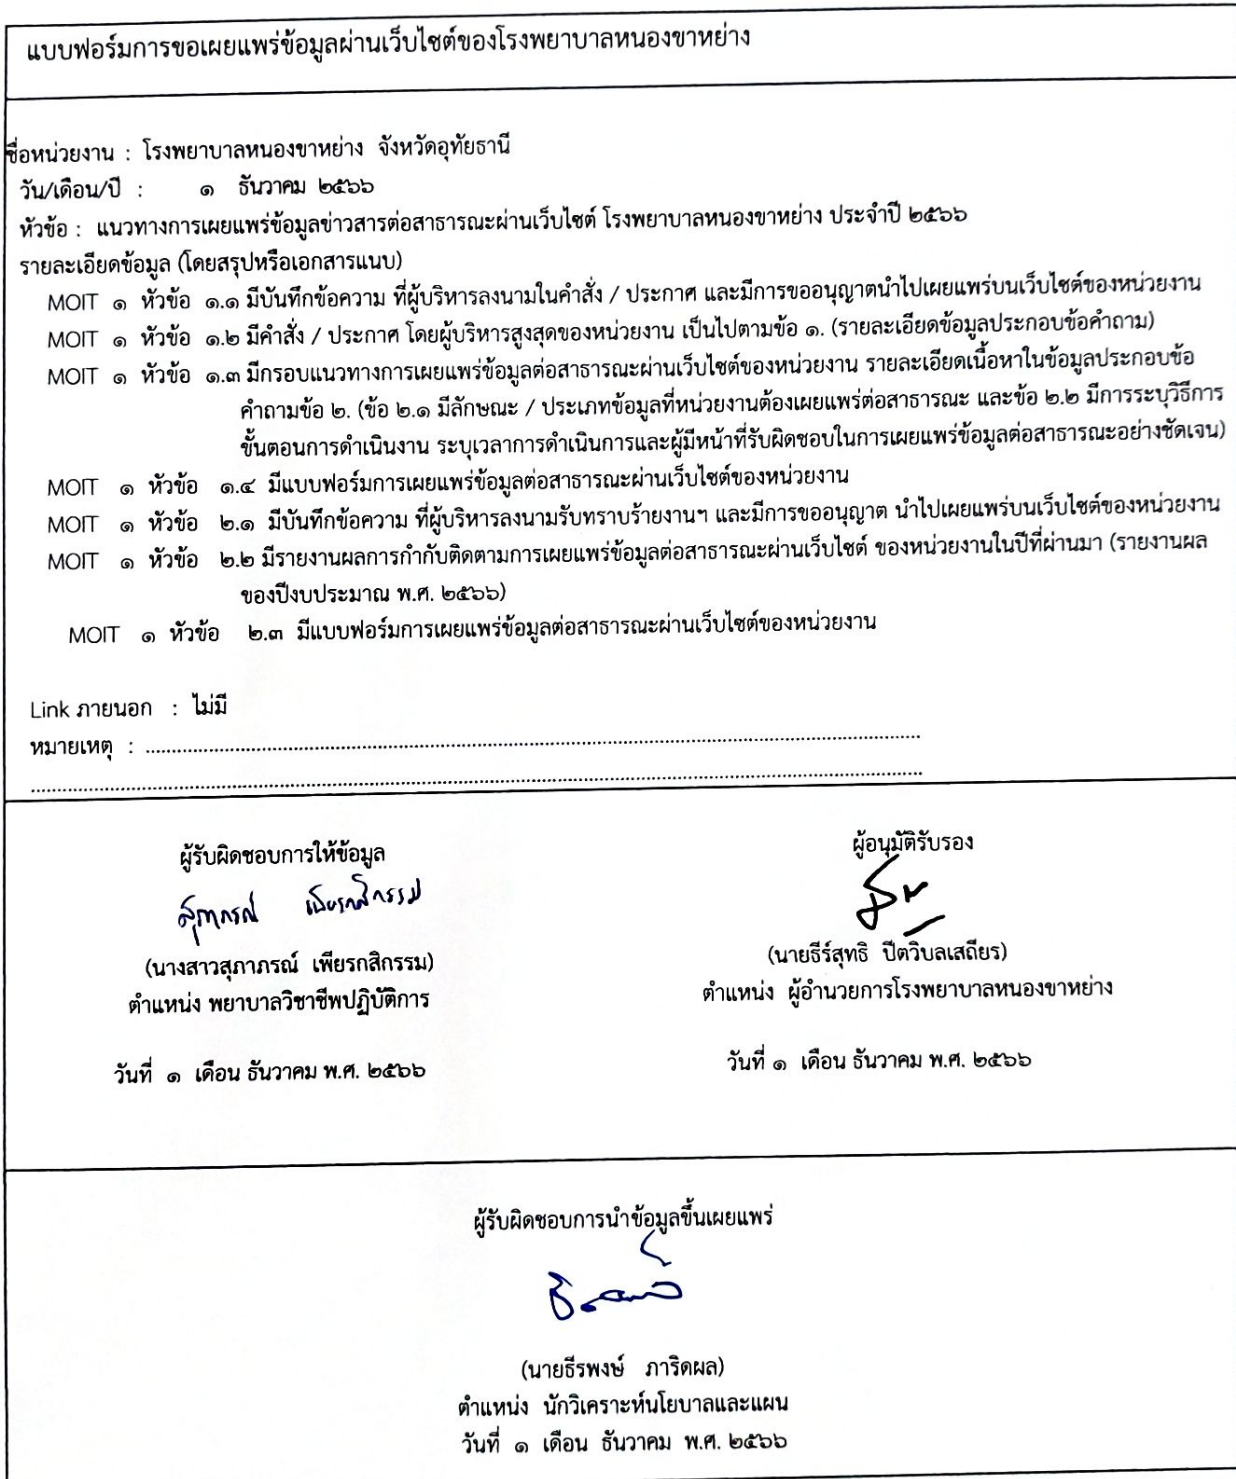 แบบฟอร์มการขอเผยแพร่ข้อมูลผ่านเว็บไซต์ของโรงพยาบาลหนองขาหย่าง
ชื่อหน่วยงาน : โรงพยาบาลหนองขาหย่าง จังหวัดอุทัยธานี
วัน/เดือน/ปี : ๑ ธันวาคม ๒๕๖๖
หัวข้อ : แนวทางการเผยแพร่ข้อมูลข่าวสารต่อสาธารณะผ่านเว็บไซต์ โรงพยาบาลหนองขาหย่าง ประจำปี ๒๕๖๖
รายละเอียดข้อมูล (โดยสรุปหรือเอกสารแนบ)
MOIT ๑ หัวข้อ ๑.๑ มีบันทึกข้อความ ที่ผู้บริหารลงนามในคำสั่ง / ประกาศ และมีการขออนุญาตนำไปเผยแพร่บนเว็บไซต์ของหน่วยงาน
MOIT ๑ หัวข้อ ๑.๒ มีคำสั่ง / ประกาศ โดยผู้บริหารสูงสุดของหน่วยงาน เป็นไปตามข้อ ๑. (รายละเอียดข้อมูลประกอบข้อคำถาม)
MOIT ๑ หัวข้อ ๑.๓ มีกรอบแนวทางการเผยแพร่ข้อมูลต่อสาธารณะผ่านเว็บไซต์ของหน่วยงาน รายละเอียดเนื้อหาในข้อมูลประกอบข้อ
คำถามข้อ ๒. (ข้อ ๒.๑ มีลักษณะ / ประเภทข้อมูลที่หน่วยงานต้องเผยแพร่ต่อสาธารณะ และข้อ ๒.๒ มีการระบุวิธีการ
ขั้นตอนการดำเนินงาน ระบุเวลาการดำเนินการและผู้มีหน้าที่รับผิดชอบในการเผยแพร่ข้อมูลต่อสาธารณะอย่างชัดเจน)
MOIT ๑ หัวข้อ ๑.๔ มีแบบฟอร์มการเผยแพร่ข้อมูลต่อสาธารณะผ่านเว็บไซต์ของหน่วยงาน
MOIT ๑ หัวข้อ ๒.๑ มีบันทึกข้อความ ที่ผู้บริหารลงนามรับทราบร้ายงานฯ และมีการขออนุญาต นำไปเผยแพร่บนเว็บไซต์ของหน่วยงาน
MOIT ๑ หัวข้อ ๒.๒ มีรายงานผลการกำกับติดตามการเผยแพร่ข้อมูลต่อสาธารณะผ่านเว็บไซต์ ของหน่วยงานในปีที่ผ่านมา (รายงานผล
ของปีงบประมาณ พ.ศ. ๒๕๖๖)
MOIT ๑ หัวข้อ ๒.๓ มีแบบฟอร์มการเผยแพร่ข้อมูลต่อสาธารณะผ่านเว็บไซต์ของหน่วยงาน
Link ภายนอก : ไม่มี
หมายเหตุ : ........................................................................
........................................................................
ผู้รับผิดชอบการให้ข้อมูล
สุภาภรณ์ เพียรกสิกรรม
(นางสาวสุภาภรณ์ เพียรกสิกรรม)
ตำแหน่ง พยาบาลวิชาชีพปฏิบัติการ
วันที่ ๑ เดือน ธันวาคม พ.ศ. ๒๕๖๖
ผู้อนุมัติรับรอง
(นายธีร์สุทธิ ปีตวิบลเสถียร)
ตำแหน่ง ผู้อำนวยการโรงพยาบาลหนองขาหย่าง
วันที่ ๑ เดือน ธันวาคม พ.ศ. ๒๕๖๖
ผู้รับผิดชอบการนำข้อมูลขึ้นเผยแพร่
(นายธีรพงษ์ ภาริดผล)
ตำแหน่ง นักวิเคราะห์นโยบาลและแผน
วันที่ ๑ เดือน ธันวาคม พ.ศ. ๒๕๖๖